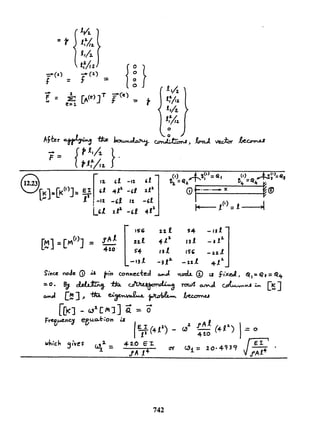 = p { l₁/2
l₁²/12
l₁/2
l₁²/12 }
f⃗⁽²⁾ = f⃗⁽³⁾ = { 0 0 0 0 }
F⃗ = Σ e=1 [A⁽ᵉ⁾]ᵀ f⃗⁽ᵉ⁾ = p { l₁/2
l₁²/12
l₁/2
l₁²/12
0
0 }
After applying the boundary conditions, load vector becomes
F⃗ = { p l₁/2
p l₁²/12 }.
12.23
[K] = [K⁽¹⁾] = EI/l³ [ 12 6l -12 6l
6l 4l² -6l 2l²
-12 -6l 12 -6l
6l 2l² -6l 4l² ]
[M] = [M⁽¹⁾] = ρAl/420 [ 156 22l 54 -13l
22l 4l² 13l -3l²
54 13l 156 -22l
-13l -3l² -22l 4l² ]
Since node ① is pin connected and node ② is fixed, Q₁ = Q₃ = Q₄
= 0. By deleting the corresponding rows and columns in [K]
and [M], the eigenvalue problem becomes
[[K] - ω²[M]] Q⃗ = 0⃗
Frequency equation is
| EI/l³ (4l²) - ω² ρAl/420 (4l²) | = 0
which gives ω₁² = 420 EI/ρAl⁴ or ω₁ = 20.4939 √(EI/ρAl⁴)
742